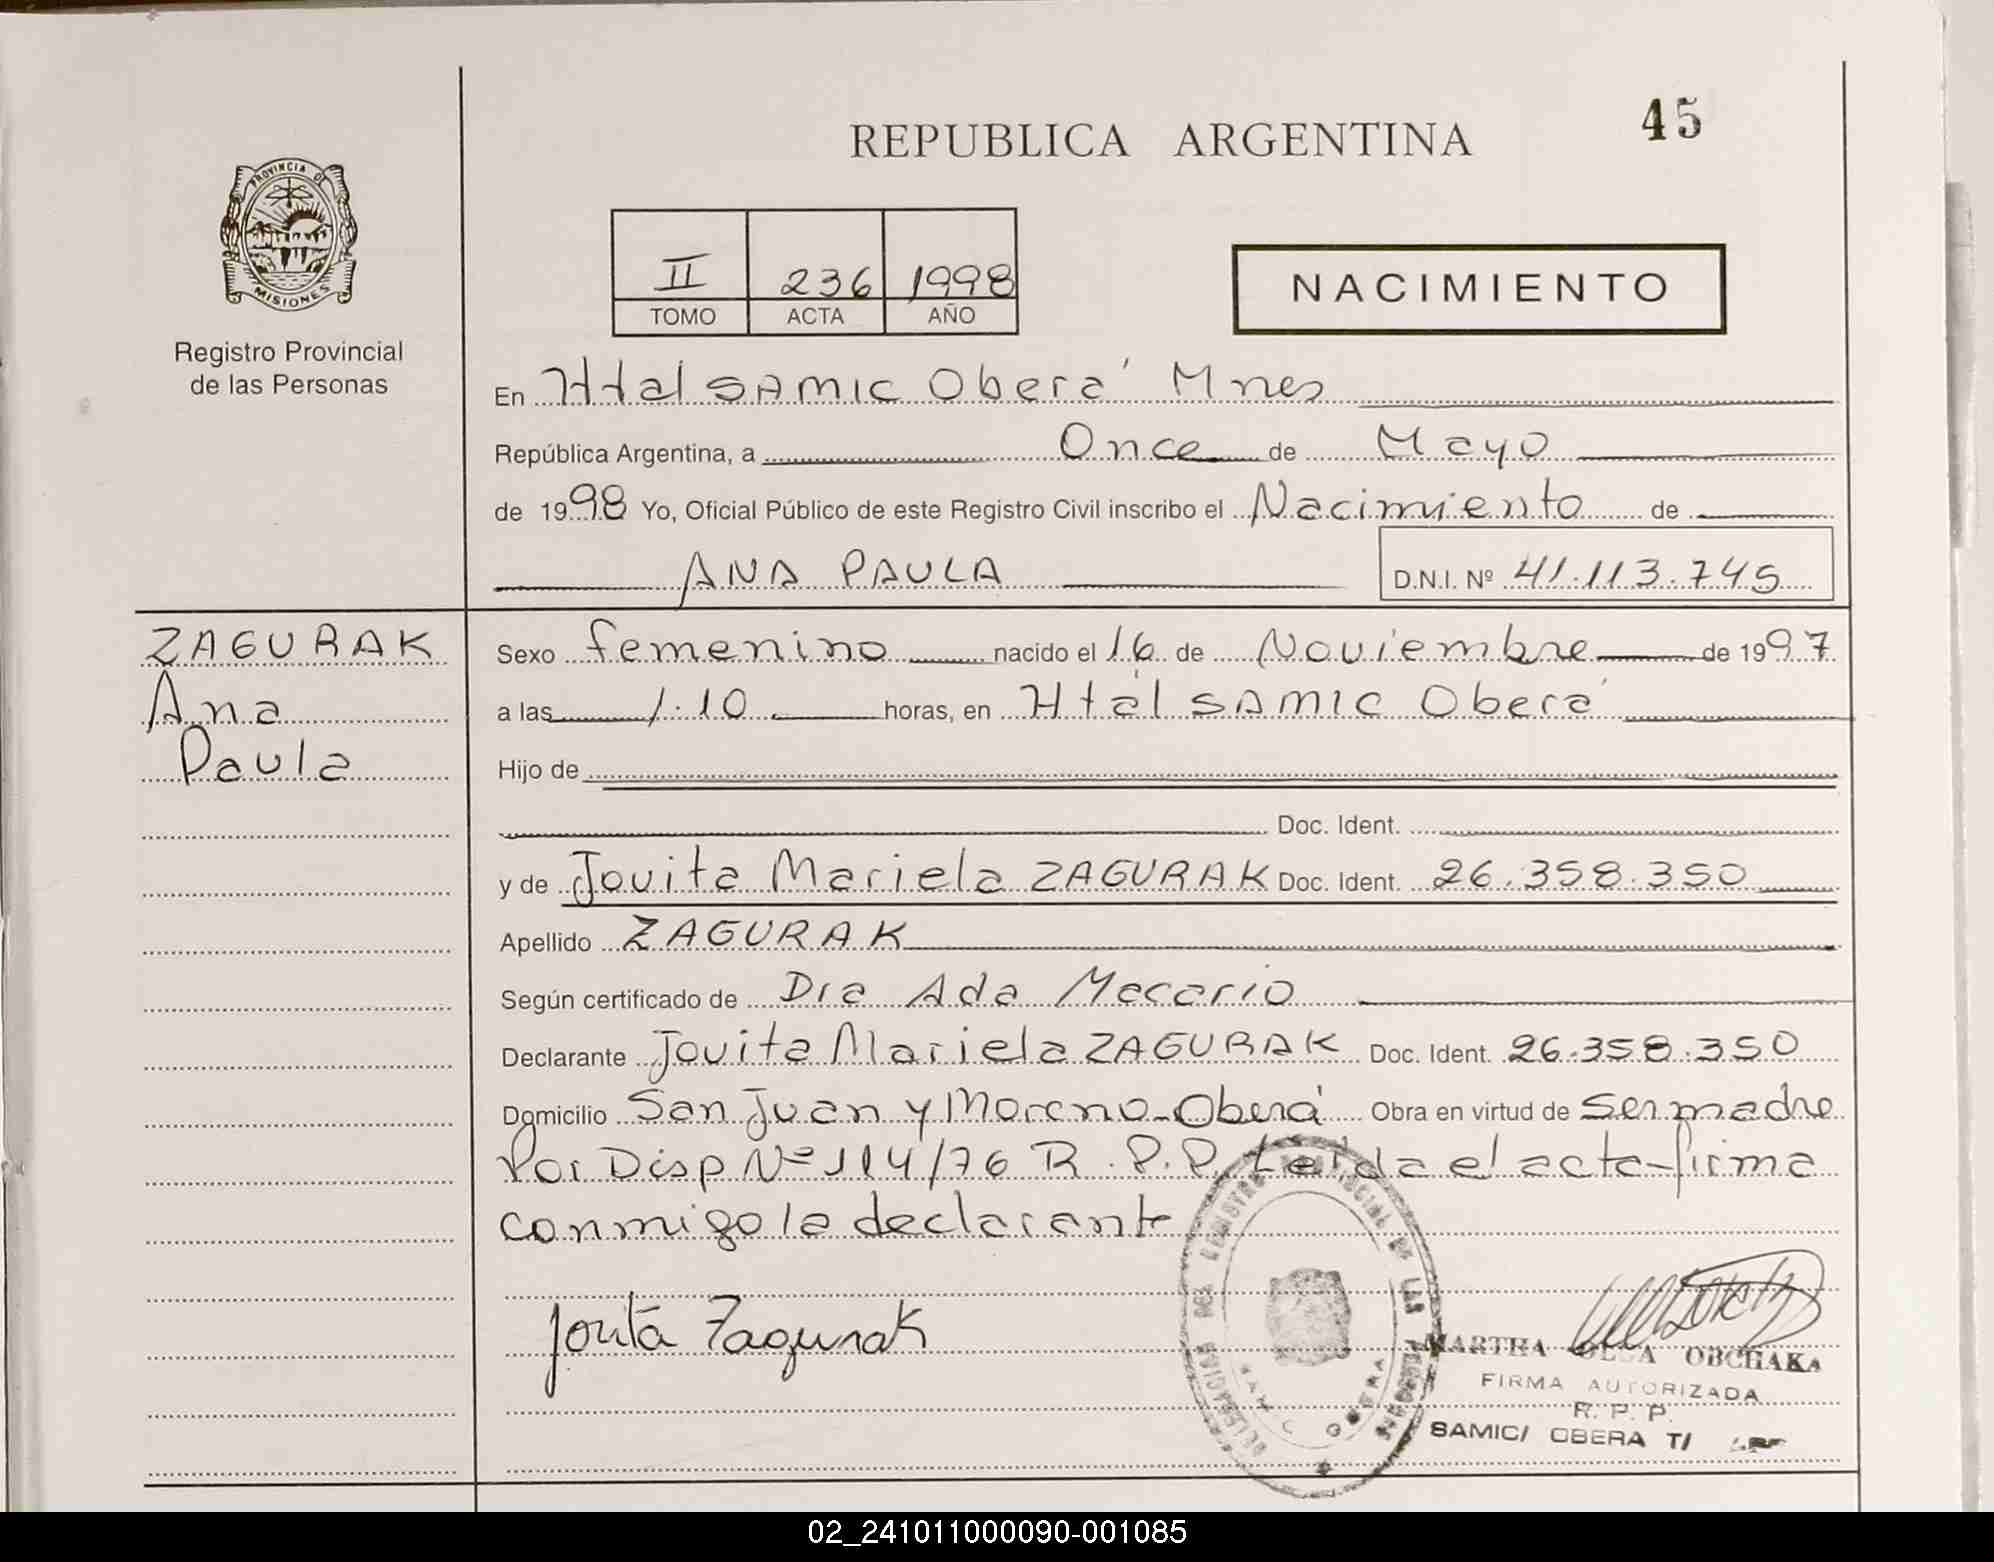 45
REPUBLICA ARGENTINA
PROVINCIA DE
MISIONES
Registro Provincial
de las Personas
II 236 1998
TOMO ACTA AÑO
NACIMIENTO
En Htal SAMIC Oberá Mnes
República Argentina, a Once de Mayo
de 1998 Yo, Oficial Público de este Registro Civil inscribo el Nacimiento de
ANA PAULA D.N.I. Nº 41.113.745
ZAGURAK
Ana
Paula
Sexo femenino nacido el 16 de Noviembre de 1997
a las 1.10 horas, en Htal SAMIC Oberá
Hijo de
Doc. Ident.
y de Jovita Mariela ZAGURAK Doc. Ident. 26.358.350
Apellido ZAGURAK
Según certificado de Dra Ada Macario
Declarante Jovita Mariela ZAGURAK Doc. Ident. 26.358.350
Domicilio San Juan y Moreno-Oberá Obra en virtud de ser madre
Por Disp Nº 114/76 R.P.P. Leída el acta-firma
conmigo la declarante
Jovita Zagurak
DELEGACION DEL REGISTRO PROVINCIAL DE LAS PERSONAS
SAMIC OBERA
MARTHA OLGA OBCHAKA
FIRMA AUTORIZADA
R. P. P.
SAMIC/ OBERA T/
02_241011000090-001085